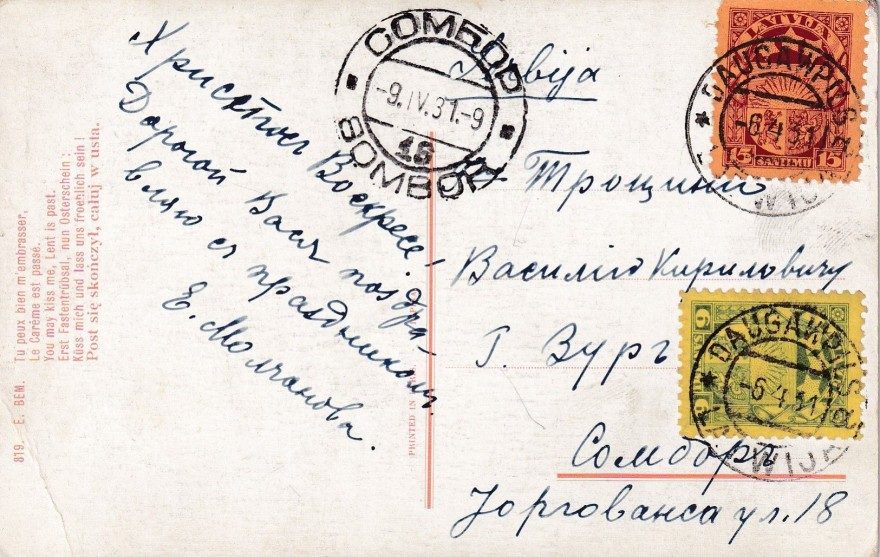 819 E. BEM.
Tu peux bien m'embrasser,
Le Carême est passé.
You may kiss me, Lent is past.
Erst Fastentrübsal, nun Osterschein:
Küss mich und lass uns froehlich sein!
Post się skończył, całuj w usta.
Христос Воскресе!
Дорогой Вася поздра-
вляю съ праздникомъ
Е. Молчанова.
СОМБОР
-9.IV.31.-9
SOMBOR
PRINTED IN
LATVIJA
15 SANTIMU 15
DAUGAWPILS
-6.4.31
6
DAUGAWPILS
-6.4.31
Василію Кириловичу
Г. Вург
Сомборъ
Јоргованса ул. 18